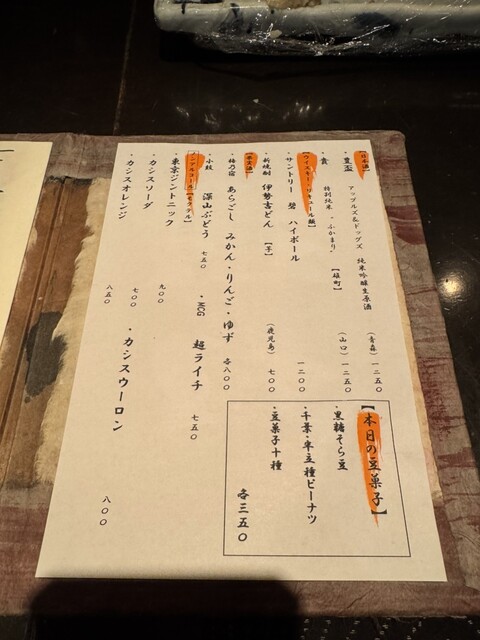 【日本酒】
・豊盃 アップルズ&ドッグズ 純米吟醸生原酒 (青森) 一二五〇
・貴 特別純米 ・ふかまり・ 【雄町】 (山口) 一二五〇
【ウイスキー・リキュール類】
・サントリー 碧 ハイボール 一二〇〇
・新焼酎 伊勢吉どん 【芋】 (鹿児島) 七〇〇
【果実酒】
・梅乃宿 あらごし みかん・りんご・ゆず 各八〇〇
・小鼓 深山ぶどう 七五〇 ・MCG 超ライチ 七五〇
【ノンアルコール【モクテル】
・東京ジントニック 九〇〇
・カシスソーダ 七〇〇 ・カシスウーロン 八〇〇
・カシスオレンジ 八五〇
【本日の豆菓子】
・黒糖そら豆
・千葉・半立種ピーナツ
・豆菓子十種
各三五〇